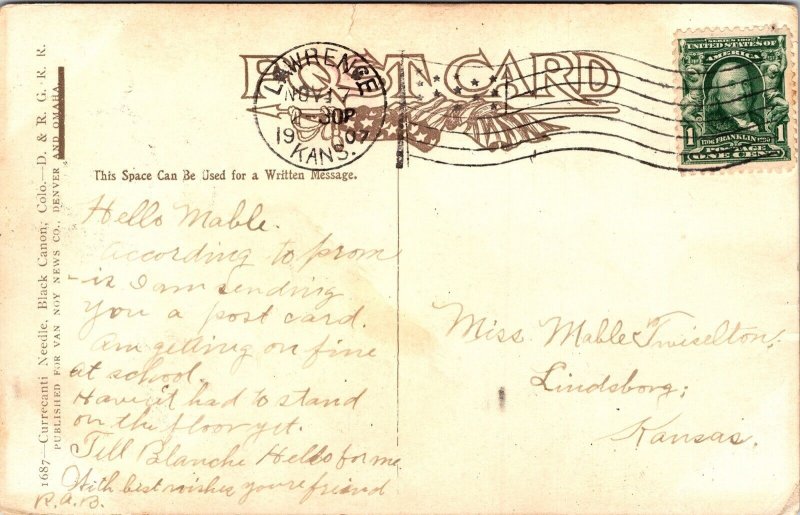 POST CARD
LAWRENCE
NOV
30P
1907
KANS.
SERIES 1902
UNITED STATES OF
AMERICA
1 1
1706 FRANKLIN 1790
POSTAGE
ONE CENT
This Space Can Be Used for a Written Message.
1687—Currecanti Needle, Black Canon, Colo.—D. & R. G. R. R.
PUBLISHED FOR VAN NOY NEWS CO., DENVER AND OMAHA
Hello Mable.
According to prom
-is I am sending
you a post card.
Am getting on fine
at school.
Haven't had to stand
on the floor yet.
Tell Blanche Hello for me
With best wishes youre friend
R.A.B.
Miss Mable Twiselton,
Lindsborg;
Kansas.